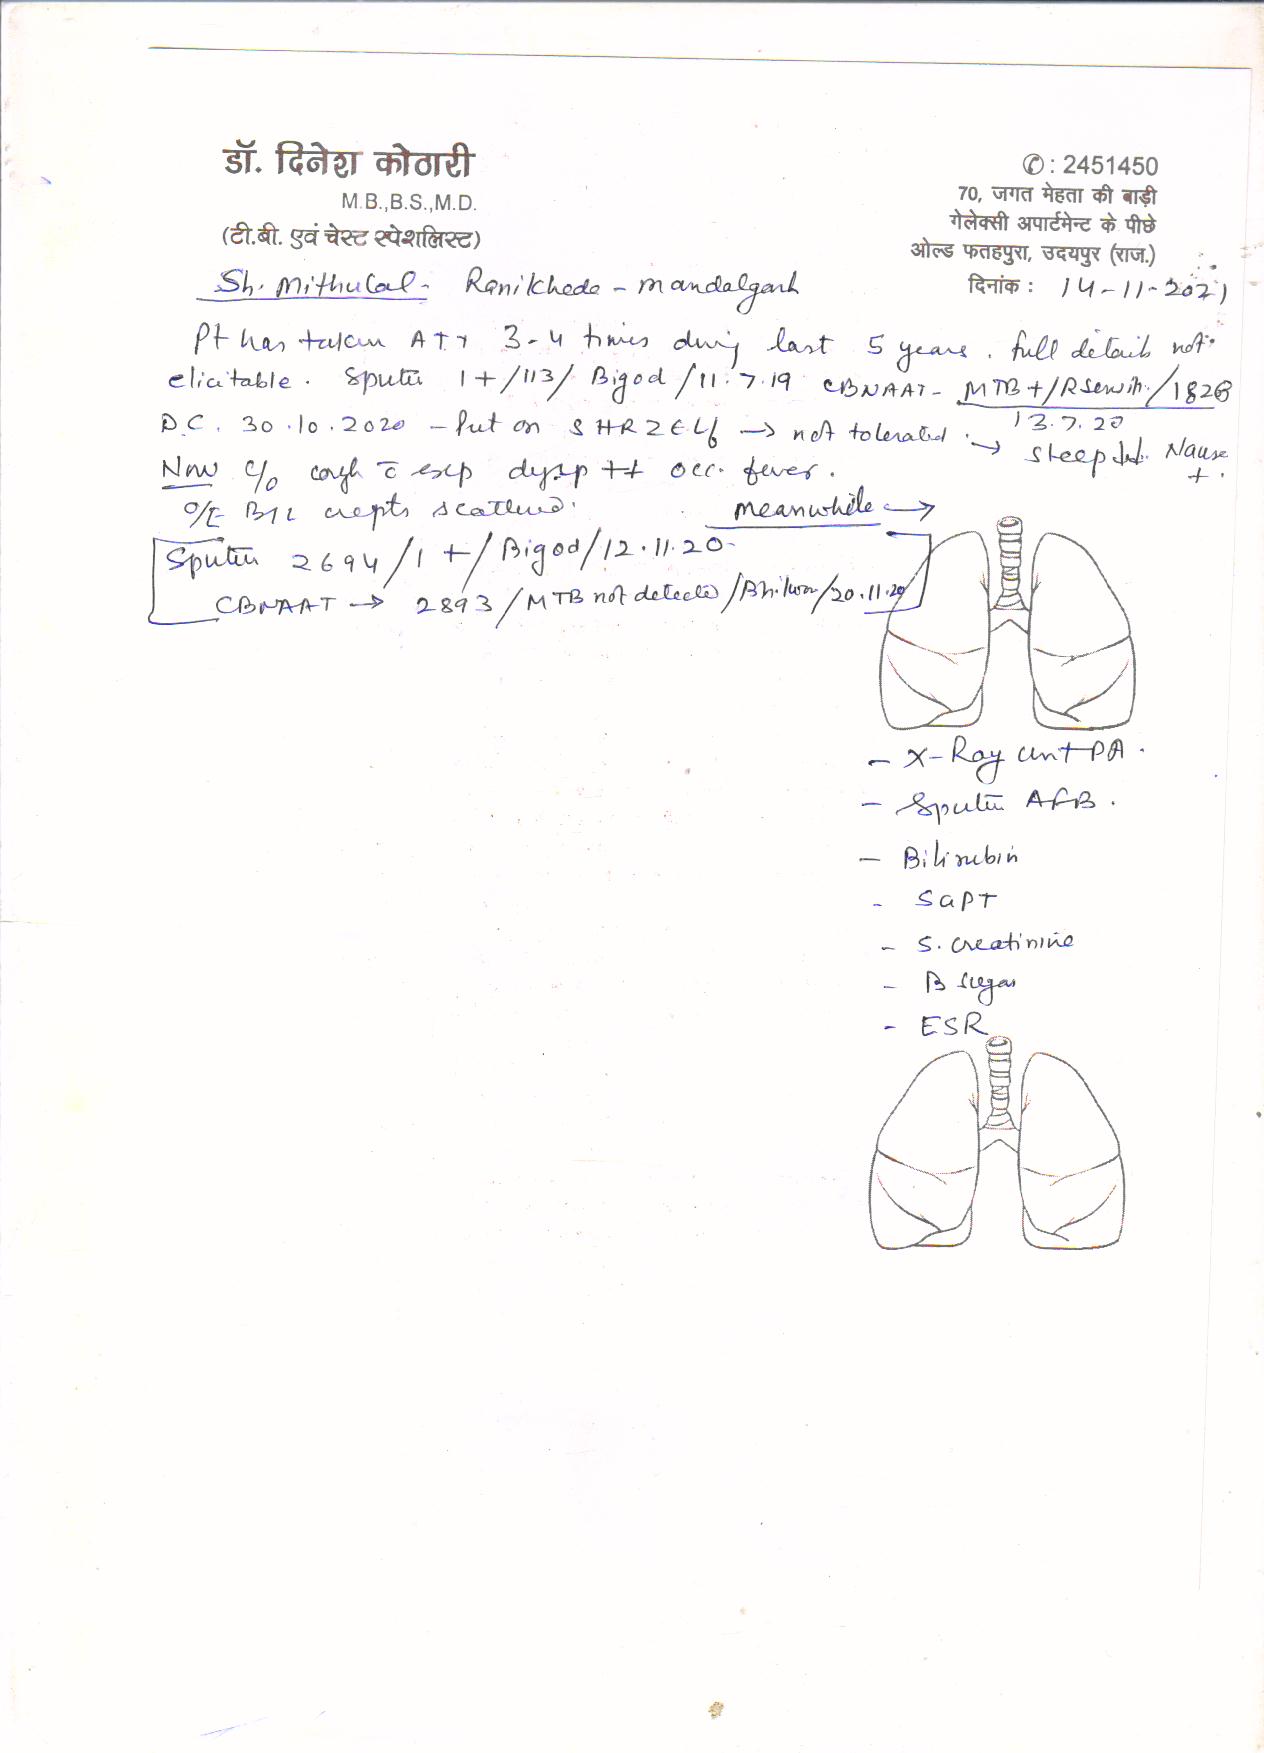 डॉ. दिनेश कोठारी
M.B.,B.S.,M.D.
(टी.बी. एवं चेस्ट स्पेशलिस्ट)
✆ : 2451450
70, जगत मेहता की बाड़ी
गेलेक्सी अपार्टमेन्ट के पीछे
ओल्ड फतहपुरा, उदयपुर (राज.)
दिनांक : 14-11-2021
Sh. Mithulal - Ranikheda - Mandalgarh
Pt has taken ATT 3-4 times during last 5 years. full details not
elicitable. Sputum 1+/113/ Bigod /11.7.19 CBNAAT - MTB+/R Sensiti./1828
13.7.20
D.C. 30.10.2020 - Put on SHRZE → not tolerated. →
Nausea +.
Now c/o cough c̄ exp dysp ++ occ. fever.
O/E B/L crepts scattered.
Meanwhile →
Sputum 2694/1+/Bigod/12.11.20
CBNAAT → 2893/MTB not detected/20.11.20
- X-Ray chest PA.
- Sputum AFB.
- Bilirubin
- SGPT
- S. creatinine
- B sugar
- ESR